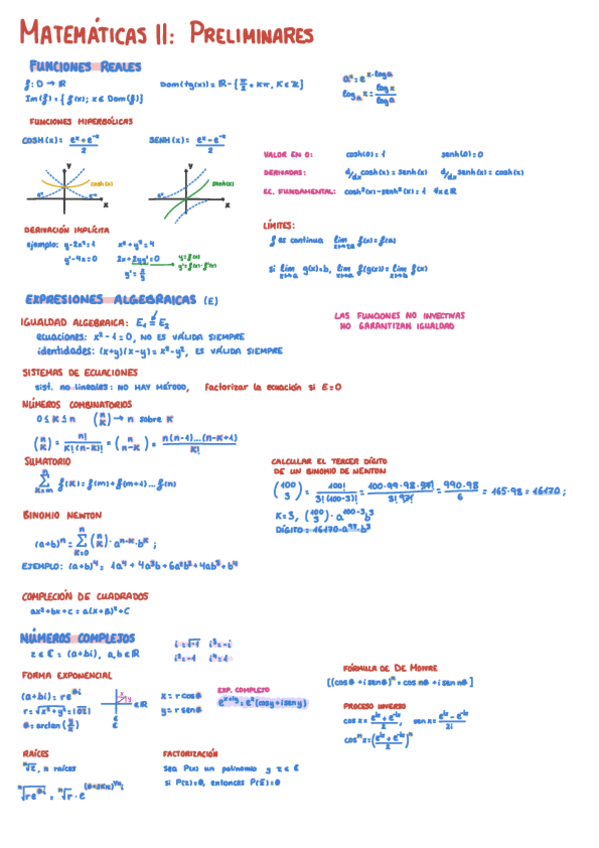 MATEMÁTICAS II: PRELIMINARES
FUNCIONES REALES
f: D → ℝ
Dom(tg(x)) = ℝ - {π/2 + kπ, k ∈ ℤ}
aˣ = e^(x·log a)
Im(f) = {f(x); x ∈ Dom(f)}
logₐ x = log x / log a
FUNCIONES HIPERBÓLICAS
COSH(x) = (eˣ + e⁻ˣ)/2
SENH(x) = (eˣ - e⁻ˣ)/2
VALOR EN 0: cosh(0) = 1 senh(0) = 0
DERIVADAS: d/dx cosh(x) = senh(x) d/dx senh(x) = cosh(x)
EC. FUNDAMENTAL: cosh²(x) - senh²(x) = 1 ∀x ∈ ℝ
y
cosh(x)
x
y
senh(x)
x
DERIVACIÓN IMPLÍCITA
ejemplo: y - 2x² = 1 x² + y² = 4
y' - 4x = 0 2x + 2yy' = 0
y = f(x)
LÍMITES:
f es continua lim x→a f(x) = f(a)
si lim x→a g(x) = b, lim x→a f(g(x)) = lim x→b f(x)
EXPRESIONES ALGEBRAICAS (E)
IGUALDAD ALGEBRAICA: E₁ = E₂
ecuaciones: x² - 1 = 0, NO ES VÁLIDA SIEMPRE
identidades: (x+y)(x-y) = x² - y², ES VÁLIDA SIEMPRE
LAS FUNCIONES NO INYECTIVAS
NO GARANTIZAN IGUALDAD
SISTEMAS DE ECUACIONES
sist. no lineales: NO HAY MÉTODO, Factorizar la ecuación si E = 0
NÚMEROS COMBINATORIOS
0 ≤ K ≤ n (n K) → n sobre K
(n K) = n!/(K!(n-K)!) = (n n-K) = n(n-1)...(n-K+1)/K!
SUMATORIO
n Σ K=m f(K) = f(m) + f(m+1)...f(n)
CALCULAR EL TERCER DÍGITO
DE UN BINOMIO DE NEWTON
(100 3) = 100!/(3!(100-3)!) = 100·99·98·97!/(3!97!) = 990·98/6 = 165·98 = 16170;
K = 3, (100 3)·a^(100-3)b³
DÍGITO = 16170·a⁹⁷·b³
BINOMIO NEWTON
(a+b)ⁿ = n Σ K=0 (n K)·aⁿ⁻ᴷ·bᴷ;
EJEMPLO: (a+b)⁴ = 1a⁴ + 4a³b + 6a²b² + 4ab³ + b⁴
COMPLECIÓN DE CUADRADOS
ax² + bx + c = a(x+B)² + C
NÚMEROS COMPLEJOS
z ∈ ℂ = (a+bi), a,b ∈ ℝ
i = √-1 i³ = -i
i² = -1 i⁴ = 1
FORMA EXPONENCIAL
(a+bi) = re^(θi)
r = √(x²+y²) = |z|
x = r cosθ
y = r senθ
EXP. COMPLEJO
e^(x+iy) = eˣ(cosy + iseny)
FÓRMULA DE DE MOIVRE
[(cosθ + i senθ)ⁿ = cos nθ + i sen nθ]
PROCESO INVERSO
cos x = (e^(ix) + e^(-ix))/2, sen x = (e^(ix) - e^(-ix))/2i
cosⁿx = ((e^(ix) + e^(-ix))/2)ⁿ
RAÍCES
ⁿ√z, n raíces
ⁿ√(re^(θi)) = ⁿ√r · e^((θ+2Kπ)1/n i)
FACTORIZACIÓN
Sea P(x) un polinomio y z ∈ ℂ
si P(z) = 0, entonces P(z̄) = 0